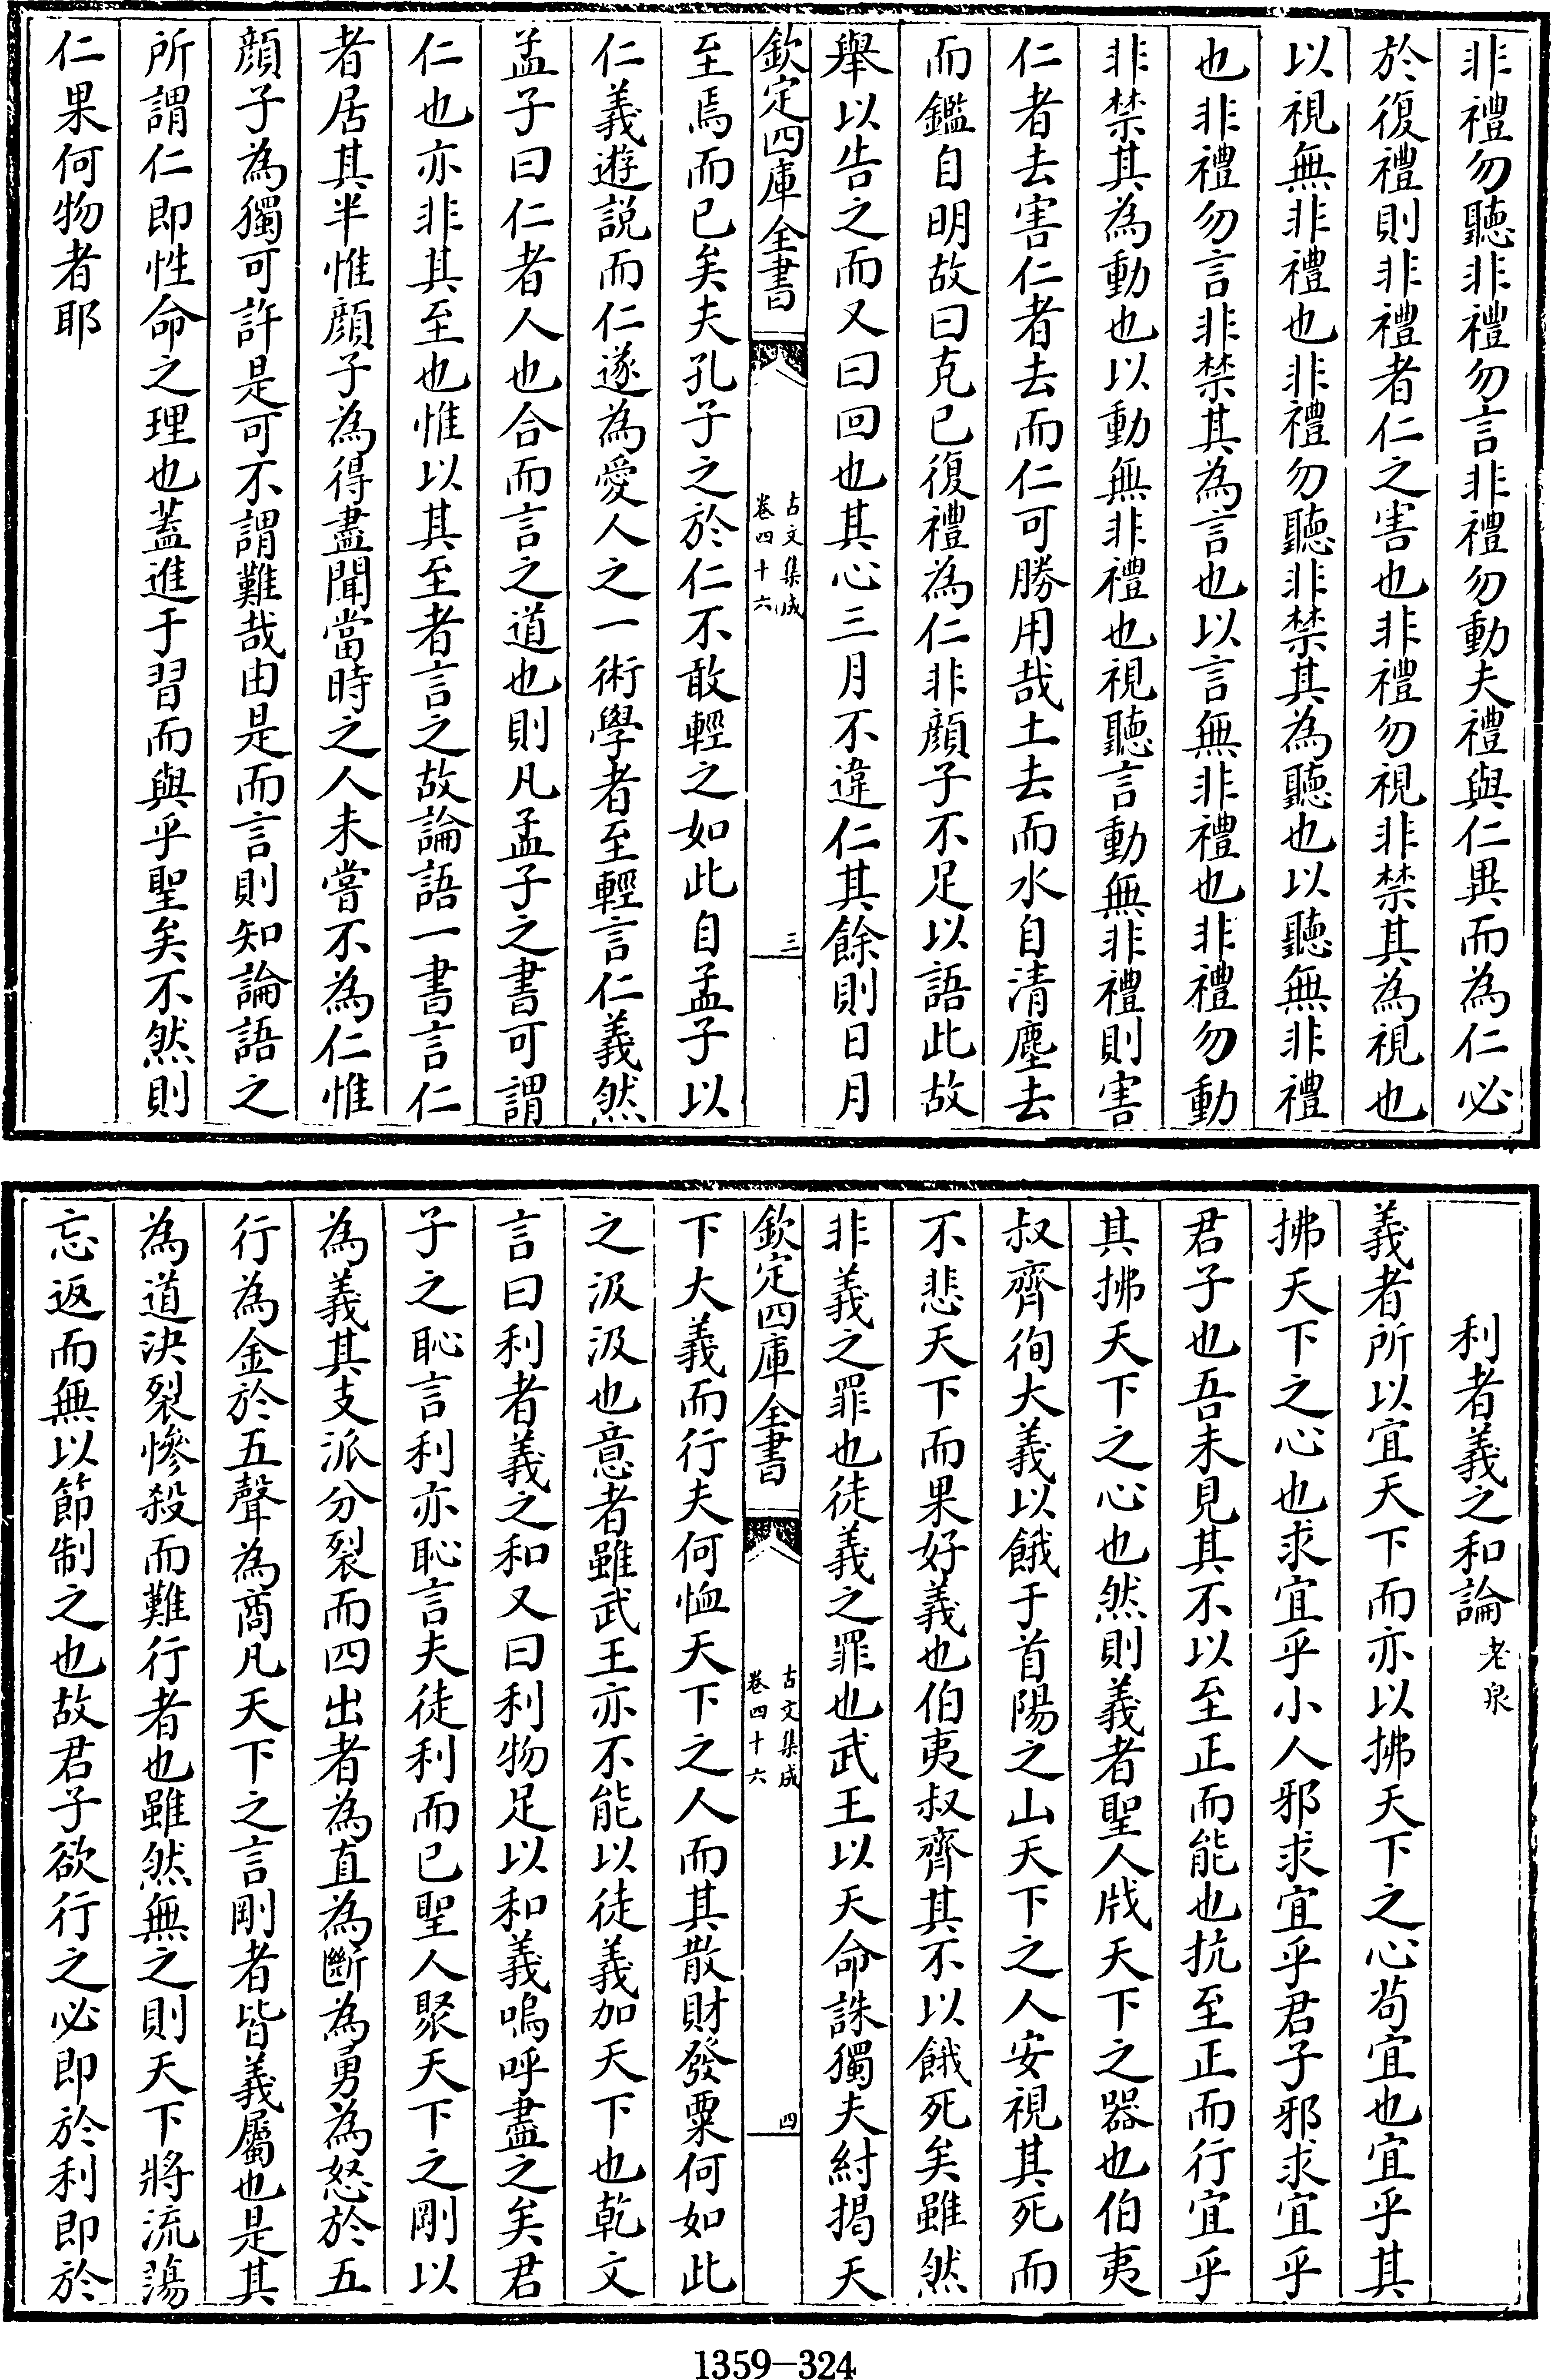 非禮勿聽非禮勿言非禮勿動夫禮與仁異而為仁必
於復禮則非禮者仁之害也非禮勿視非禁其為視也
以視無非禮也非禮勿聽非禁其為聽也以聽無非禮
也非禮勿言非禁其為言也以言無非禮也非禮勿動
非禁其為動也以動無非禮也視聽言動無非禮則害
仁者去害仁者去而仁可勝用哉土去而水自清塵去
而鑑自明故曰克已復禮為仁非顔子不足以語此故
舉以告之而又曰回也其心三月不違仁其餘則日月
欽定四庫全書
古文集成
卷四十六
三
至焉而已矣夫孔子之於仁不敢輕之如此自孟子以
仁義遊説而仁遂為愛人之一術學者至輕言仁義然
孟子曰仁者人也合而言之道也則凡孟子之書可謂
仁也亦非其至也惟以其至者言之故論語一書言仁
者居其半惟顔子為得盡聞當時之人未嘗不為仁惟
顔子為獨可許是可不謂難哉由是而言則知論語之
所謂仁即性命之理也蓋進于習而與乎聖矣不然則
仁果何物者耶
利者義之和論 老泉
義者所以宜天下而亦以拂天下之心苟宜也宜乎其
拂天下之心也求宜乎小人邪求宜乎君子邪求宜乎
君子也吾未見其不以至正而能也抗至正而行宜乎
其拂天下之心也然則義者聖人戕天下之器也伯夷
叔齊徇大義以餓于首陽之山天下之人安視其死而
不悲天下而果好義也伯夷叔齊其不以餓死矣雖然
非義之罪也徒義之罪也武王以天命誅獨夫紂揭天
欽定四庫全書
古文集成
卷四十六
四
下大義而行夫何恤天下之人而其散財發粟何如此
之汲汲也意者雖武王亦不能以徒義加天下也乾文
言曰利者義之和又曰利物足以和義嗚呼盡之矣君
子之恥言利亦恥言夫徒利而已聖人聚天下之剛以
為義其支派分裂而四出者為直為斷為勇為怒於五
行為金於五聲為商凡天下之言剛者皆義屬也是其
為道決裂慘殺而難行者也雖然無之則天下將流蕩
忘返而無以節制之也故君子欲行之必即於利即於
1359-324